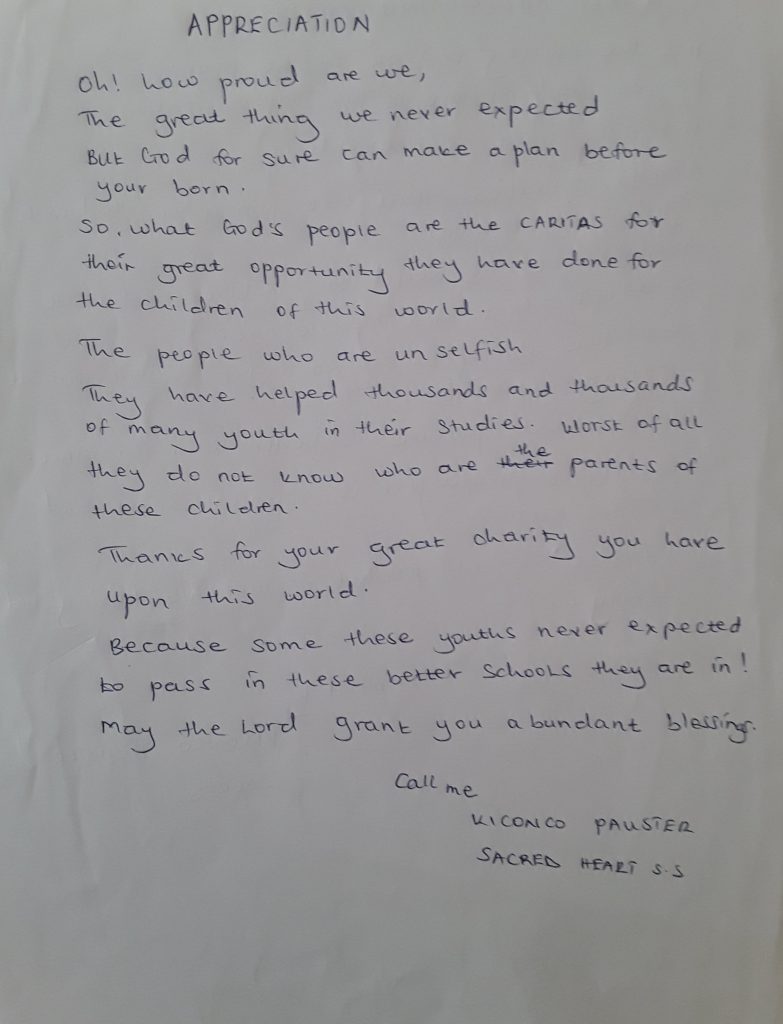 APPRECIATION
Oh! how proud are we,
The great thing we never expected
But God for sure can make a plan before
your born.
So, what God's people are the CARITAS for
their great opportunity they have done for
the children of this world.
The people who are unselfish
They have helped thousands and thousands
of many youth in their studies. Worst of all
they do not know who are their the parents of
these children.
Thanks for your great charity you have
upon this world.
Because some these youths never expected
to pass in these better schools they are in!
May the Lord grant you abundant blessings.
Call me
KICONCO PAUSTER
SACRED HEART S.S